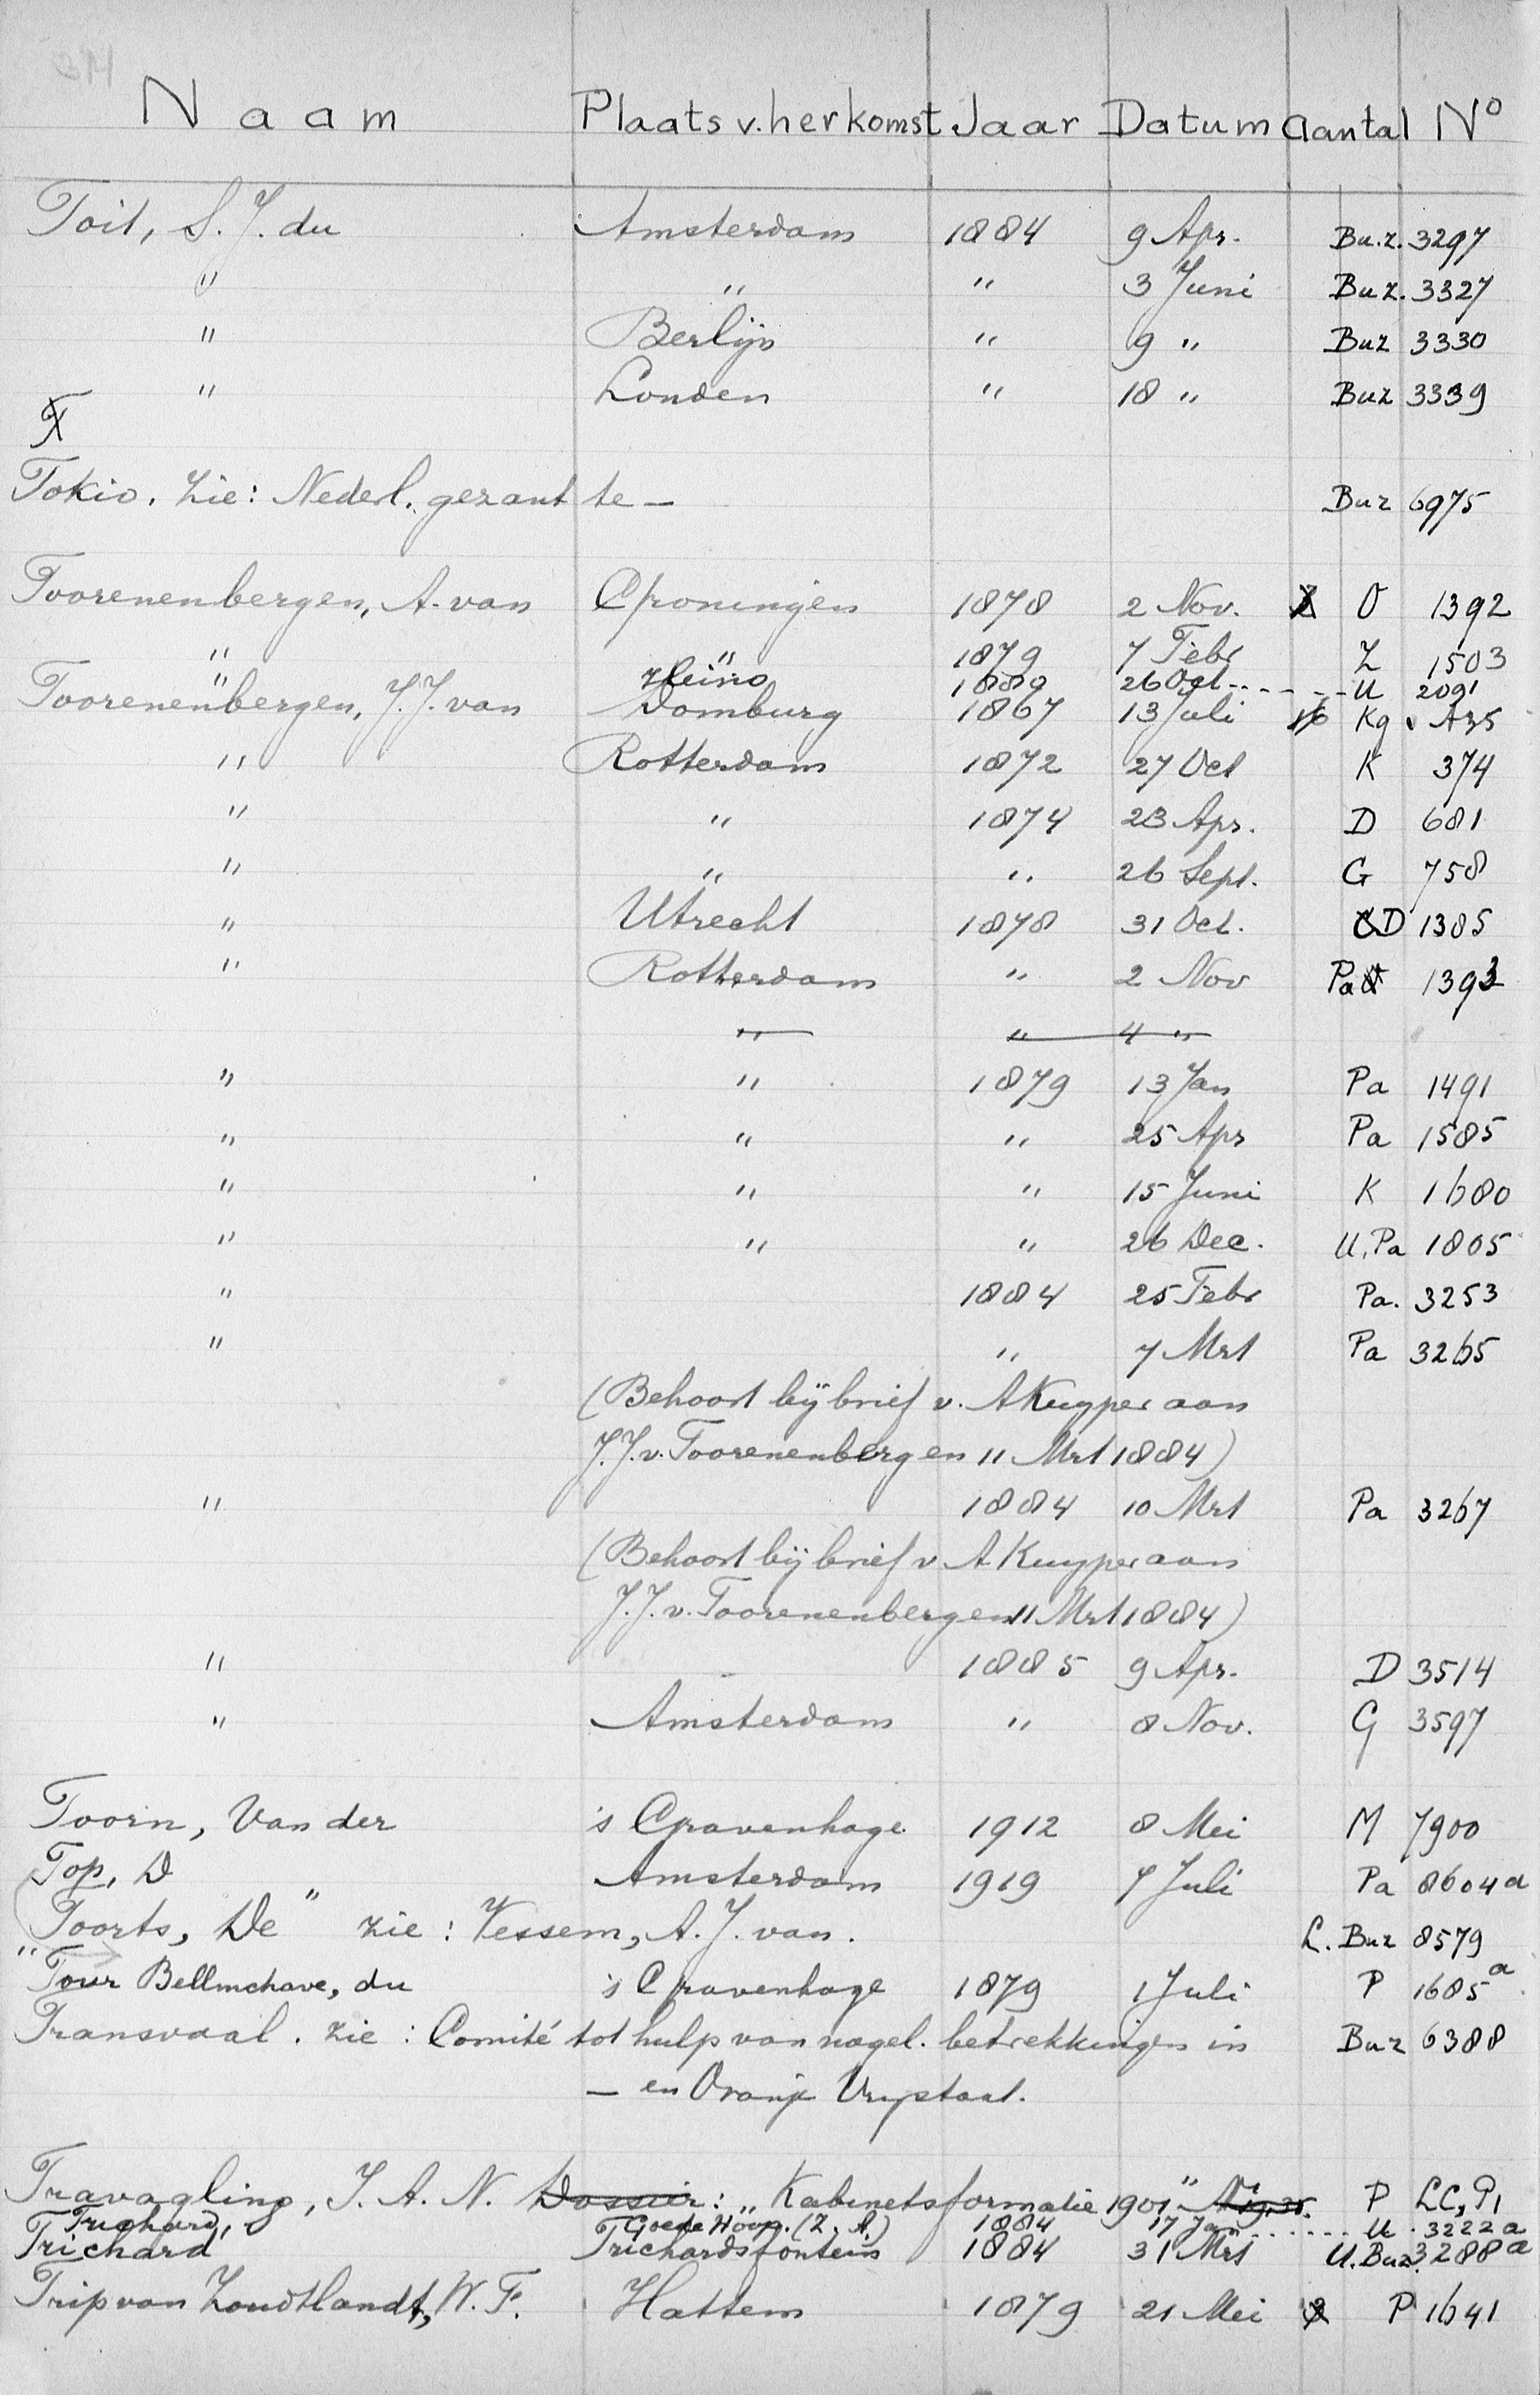 Naam Plaats v. herkomst Jaar Datum Aantal Nº
Toit, S. J. du Amsterdam 1884 9 Apr. Bu.z. 3297
" " " 3 Juni Buz. 3327
" Berlijn " 9 " Buz 3330
" Londen " 18 " Buz 3339
Tokio. Zie: Nederl. gezant te — Buz 6975
Toorenenbergen, A. van Groningen 1878 2 Nov. O 1392
" " 1879 7 Febr Z 1503
" Heino 1880 26 Oct - - - - - - U 2091
Toorenenbergen, J. J. van Domburg 1867 13 Juli Kg A35
" Rotterdam 1872 27 Oct K 374
" " 1874 23 Apr. D 681
" " " 26 Sept. G 758
" Utrecht 1878 31 Oct. D 1385
" Rotterdam " 2 Nov Pa 1393
" " 4 "
" " 1879 13 Jan Pa 1491
" " " 25 Apr Pa 1585
" " " 15 Juni K 1680
" " " 26 Dec. U. Pa 1805
" 1884 25 Febr Pa. 3253
" " 7 Mrt Pa 3265
(Behoort bij brief v. A Kuyper aan
J. J. v. Toorenenbergen 11 Mrt 1884)
" 1884 10 Mrt Pa 3267
(Behoort bij brief v A Kuyper aan
J. J. v. Toorenenbergen 11 Mrt 1884)
" 1885 9 Apr. D 3514
" Amsterdam " 8 Nov. G 3597
Toorn, Van der 's Gravenhage 1912 8 Mei M 7900
Top, D Amsterdam 1919 7 Juli Pa 8604a
"Toorts, De" zie: Vessem, A. J. van. L. Buz 8579
Tour Bellinchave, du 's Gravenhage 1879 1 Juli P 1685a
Transvaal. zie: Comité tot hulp van nagel. betrekkingen in Buz 6388
— en Oranje Vrystaat.
Travaglino, J. A. N. Dossier: "Kabinetsformatie 1901" P LC, P1
Trichard, Goede Hoop. (Z. A.) 1884 17 Jan - - - - - - U 3222a
Trichard Trichardsfontein 1884 31 Mrt U. Buz. 3288a
Trip van Zoudtlandt, W. F. Hattem 1879 21 Mei P 1641